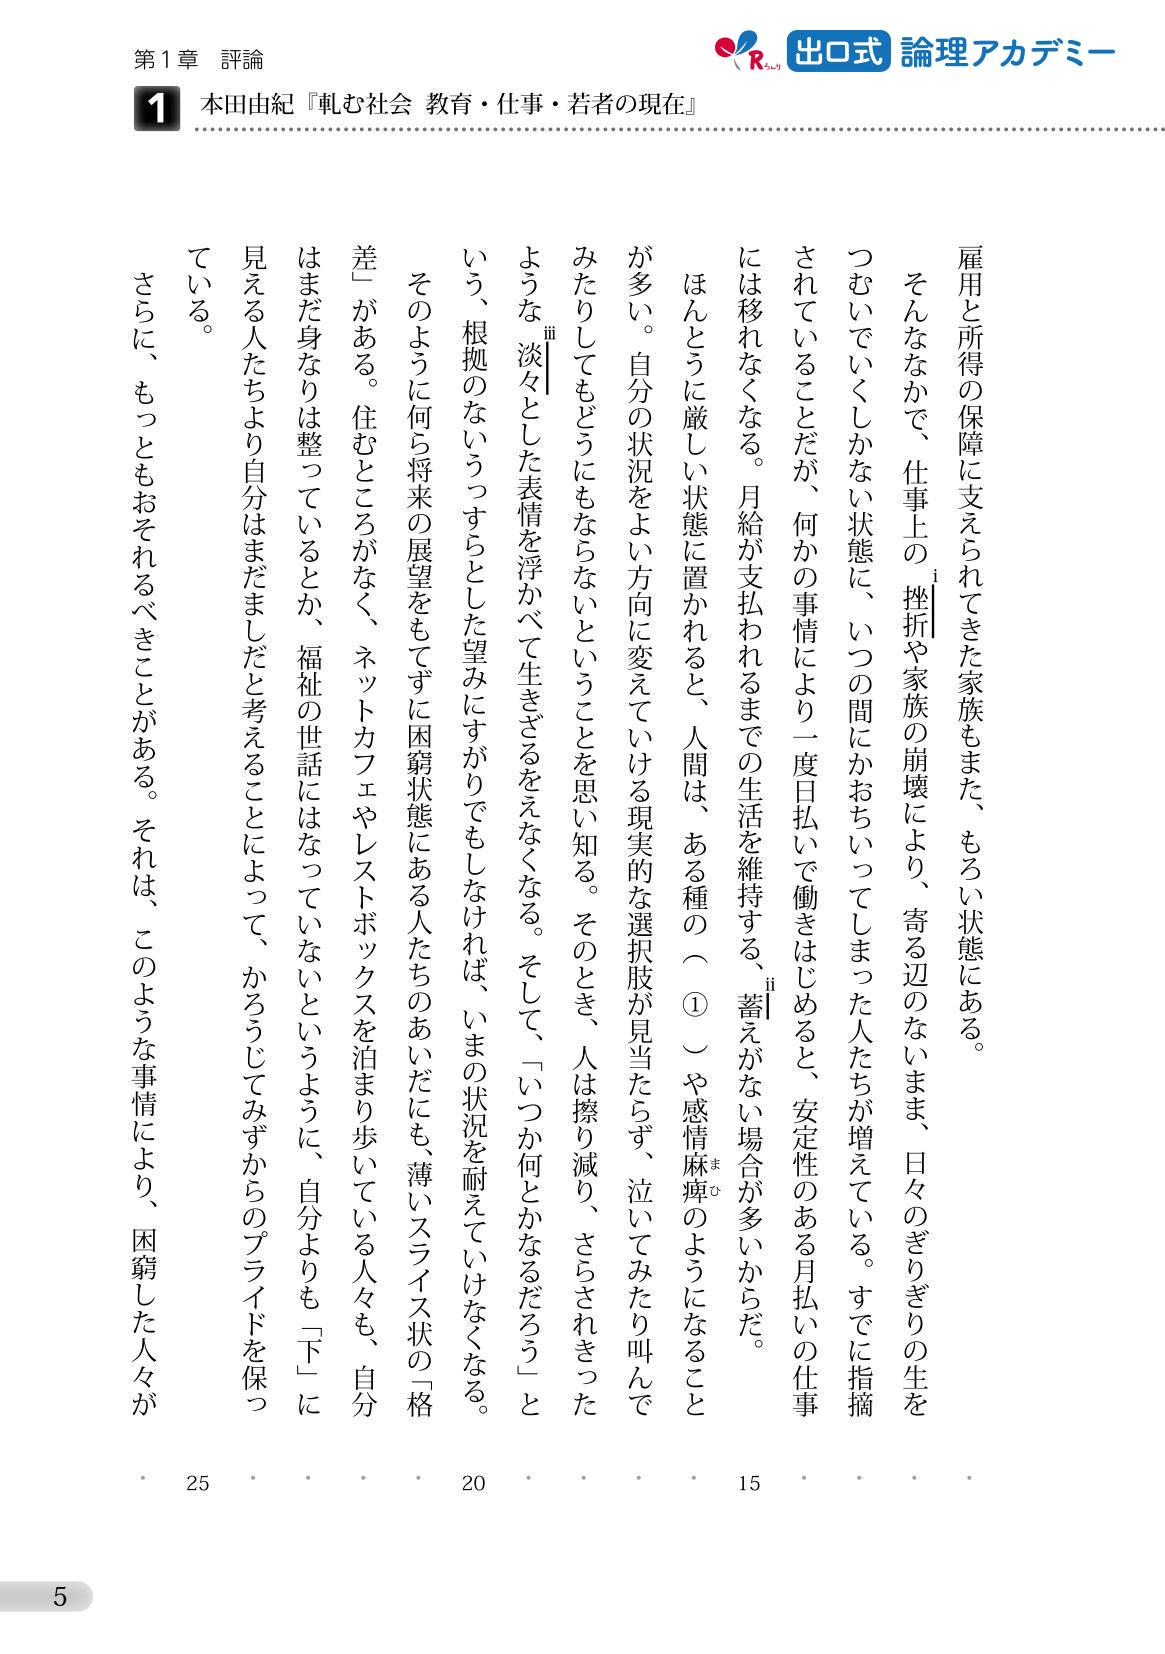 第1章　評論
Rろんり 出口式 論理アカデミー
1 本田由紀『軋む社会 教育・仕事・若者の現在』
雇用と所得の保障に支えられてきた家族もまた、もろい状態にある。
そんななかで、仕事上の i 挫折や家族の崩壊により、寄る辺のないまま、日々のぎりぎりの生を
つむいでいくしかない状態に、いつの間にかおちいってしまった人たちが増えている。すでに指摘
されていることだが、何かの事情により一度日払いで働きはじめると、安定性のある月払いの仕事
には移れなくなる。月給が支払われるまでの生活を維持する、ii 蓄えがない場合が多いからだ。
ほんとうに厳しい状態に置かれると、人間は、ある種の（　①　）や感情麻痺まひのようになること
が多い。自分の状況をよい方向に変えていける現実的な選択肢が見当たらず、泣いてみたり叫んで
みたりしてもどうにもならないということを思い知る。そのとき、人は擦り減り、さらされきった
ような iii 淡々とした表情を浮かべて生きざるをえなくなる。そして、「いつか何とかなるだろう」と
いう、根拠のないうっすらとした望みにすがりでもしなければ、いまの状況を耐えていけなくなる。
そのように何ら将来の展望をもてずに困窮状態にある人たちのあいだにも、薄いスライス状の「格
差」がある。住むところがなく、ネットカフェやレストボックスを泊まり歩いている人々も、自分
はまだ身なりは整っているとか、福祉の世話にはなっていないというように、自分よりも「下」に
見える人たちより自分はまだましだと考えることによって、かろうじてみずからのプライドを保っ
ている。
さらに、もっともおそれるべきことがある。それは、このような事情により、困窮した人々が
15
20
25
5